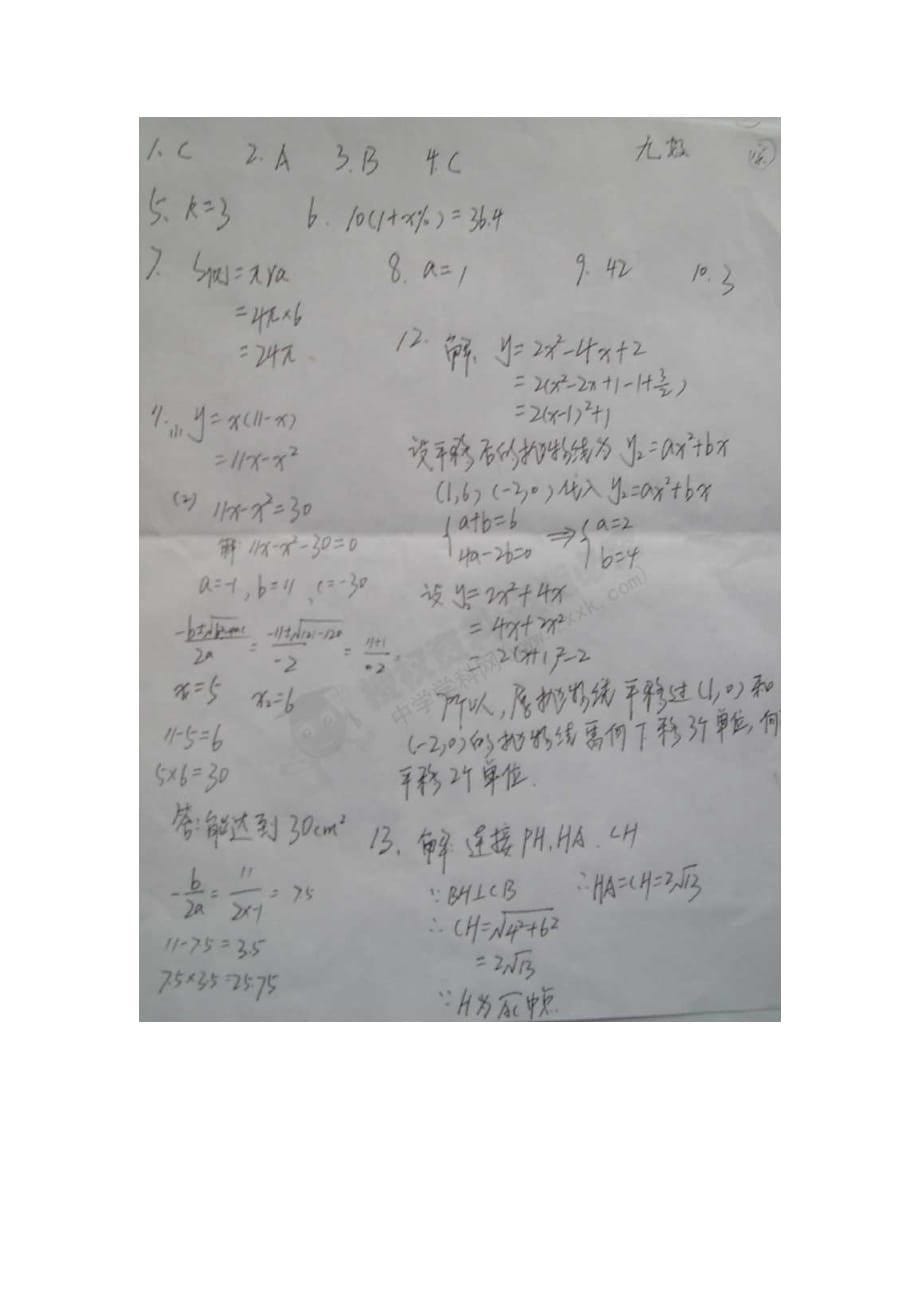 九数
1. C  2. A  3. B  4. C
5. k=3  6. 10(1+x%)=36.4
7. S侧=πra  8. a=1  9. 42  10. 3
=4π×6
=24π
11. (1) y=x(11-x)
=11x-x²
(2) 11x-x²=30
解: 11x-x²-30=0
a=-1, b=11, c=-30
=(-11±√(121-120))/(-2)
x=5  x₂=6
11-5=6
5×6=30
答: 能达到30cm²
-b/2a=11/(2×1)=7.5
11-7.5=3.5
7.5×3.5=25.75
12. 解: y=2x²-4x+2
=2(x²-2x+1-1+3/2)
=2(x-1)²+1
设平移后的抛物线为 y₂=ax²+bx
(1,6) (-2,0)代入 y₂=ax²+bx
{a+b=6 ⇒ {a=2
{4a-2b=0 {b=4
设 y₂=2x²+4x
=4x+2x²
=2(x+1)²-2
所以, 原抛物线平移过(1,0)和
(-2,0)的抛物线需向下移3个单位, 向
平移2个单位.
13. 解: 连接PH. HA. CH
∵BH⊥CB  ∴HA=CH=2√13
∴CH=√(4²+6²)
=2√13
∵H为AC中点.
中学学科网